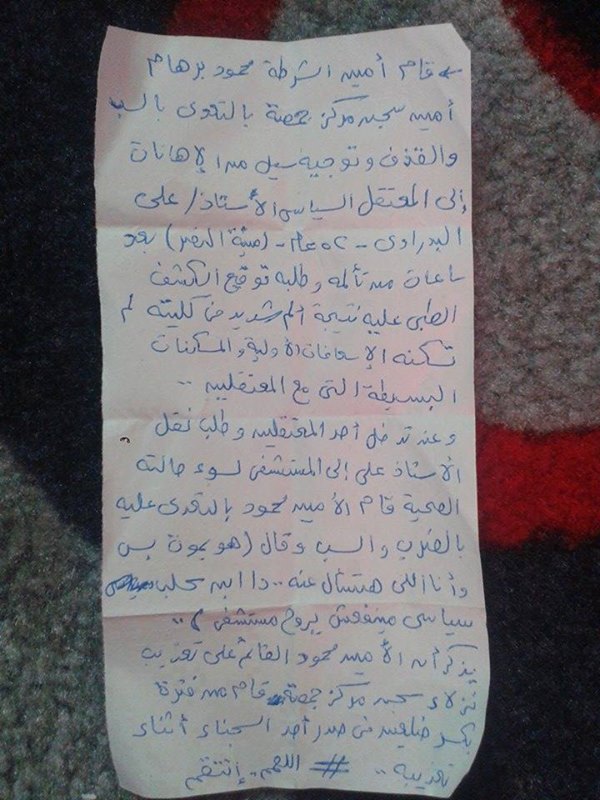 ← قام أمين الشرطة محمود برهام
أمين سجن مركز جمصة بالتعدى بالسب
والقذف وتوجيه سيل من الإهانات
إلى المعتقل السياسى الأستاذ/ على
البدراوى - ٥٢ عام - (منية النصر) بعد
ساعات من تألمه وطلبه توقيع الكشف
الطبى عليه نتيجة ألم شديد فى كليته لم
تسكنه الإسعافات الأولية والمسكنات
البسيطة التى مع المعتقلين ..
وعند تدخل أحد المعتقلين وطلب نقل
الأستاذ على إلى المستشفى لسوء حالته
الصحية قام الأمين محمود بالتعدى عليه
بالضرب والسب وقال (هو يموت بس
وأنا اللى هتسأل عنه .. دا ابن كلب
سياسى مينفعش يروح مستشفى) ..
يذكر أن الأمين محمود القائم على تعذيب
نزلاء سجن مركز جمصة قام من فترة
بكسر ضلعين فى صدر أحد السجناء أثناء
تعذيبه .. # اللهم .. إنتقم